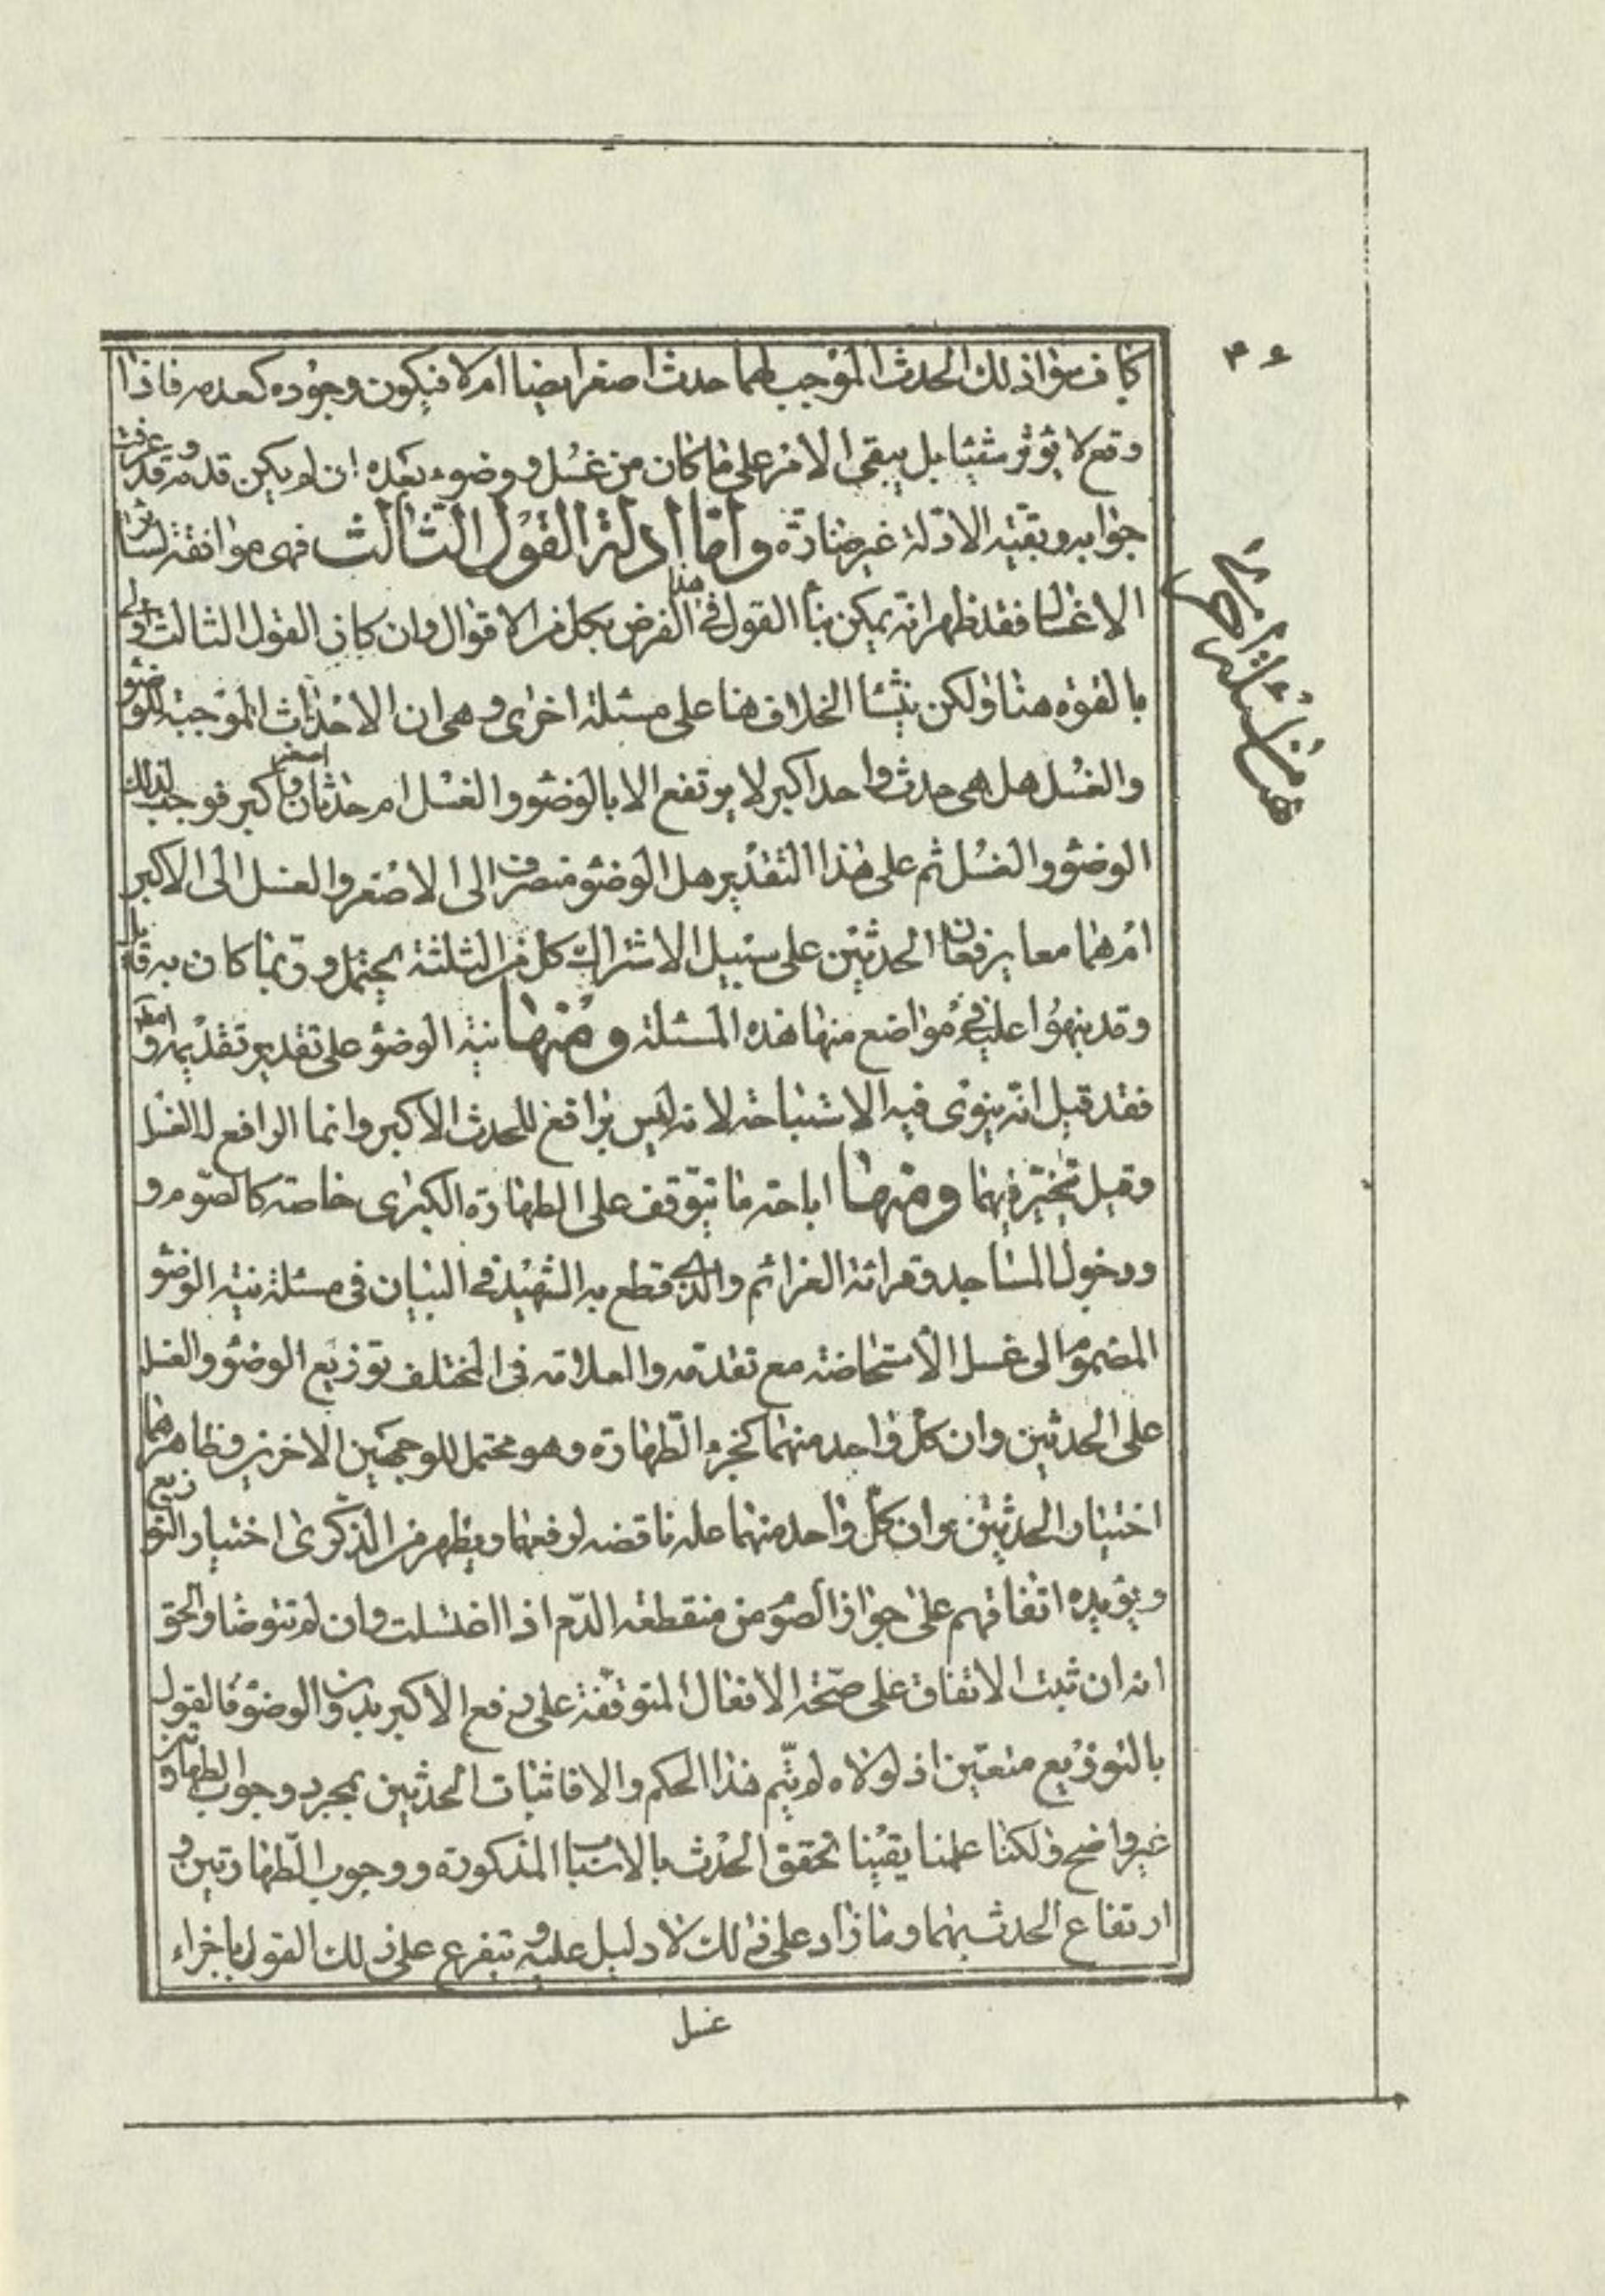 ۴۶
كاف سواء ذلك الحدث الموجب لهما حدث اصغر ايضا ام لا فيكون وجوده كعدمه فاذا
وقع لا يؤثر شيئا بل يبقى الامر على ما كان من غسل ووضوء بعده ان لم يكن قدمه وقد عرفت
جوابه وبقية الادلة غير ضارة واما ادلة القول الثالث فهى موافقة لسائر
الاغسال فقد ظهر انه يمكن بناء القول فى هذا الفرض بكل من الاقوال وان كان القول الثالث اولى
بالقوة هنا ولكن ينشأ الخلاف هنا على مسئلة اخرى وهى ان الاحداث الموجبة للوضوء
والغسل هل هى حدث واحد اكبر لا يرتفع الا بالوضوء والغسل ام حدثان اصغر واكبر فوجب لذلك
الوضوء والغسل ثم على هذا التقدير هل الوضوء منصرف الى الاصغر والغسل الى الاكبر
ام هما معا يرفعان الحدثين على سبيل الاشتراك كل من الثلثة يحتمل وربما كان به قائل
وقد نبهوا عليه فى مواضع منها هذه المسئلة ومنها نية الوضوء على تقدير تقديمه
فقد قيل انه ينوى فيه الاستباحة لانه ليس برافع للحدث الاكبر وانما الرافع له الغسل
وقيل تخير فيهما ومنها اباحة ما يتوقف على الطهارة الكبرى خاصة كالصوم و
ودخول المساجد وقرائة العزائم والذى قطع به الشهيد فى البيان فى مسئلة نية الوضوء
المضموم الى غسل الاستحاضة مع تقدمه والعلامة فى المختلف توزيع الوضوء والغسل
على الحدثين وان كل واحد منهما كجزء الطهارة وهو محتمل للوجهين الاخرين وظاهرهما
اختيار الحدثين وان كل واحد منهما علة ناقصة لرفعهما ويظهر من الذكرى اختيار التوزيع
ويؤيده اتفاقهم على جواز الصوم من منقطعة الدم اذا اغتسلت وان لم تتوضا والحق
انه ان ثبت الاتفاق على صحة الافعال المتوقفة على رفع الاكبر بدون الوضوء فالقول
بالتوزيع متعين اذ لولاه لم يتم هذا الحكم والا فاثبات الحدثين بمجرد وجوب الطهارتين
غير واضح ولكنا علمنا يقينا تحقق الحدث بالاسباب المذكورة ووجوب الطهارتين و
ارتفاع الحدث بهما وما زاد على ذلك لا دليل عليه ويتفرع على ذلك القول باجزاء
غسل